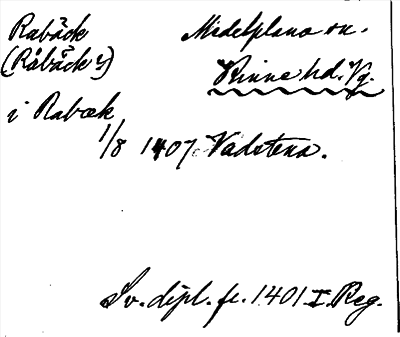 Rabäck Medelplana sn.
(Råbäck) Kinne hd. Vg.
i Rabæk
1/8 1407 Vadstena.
Sv. dipl. fr. 1401 I. Reg.